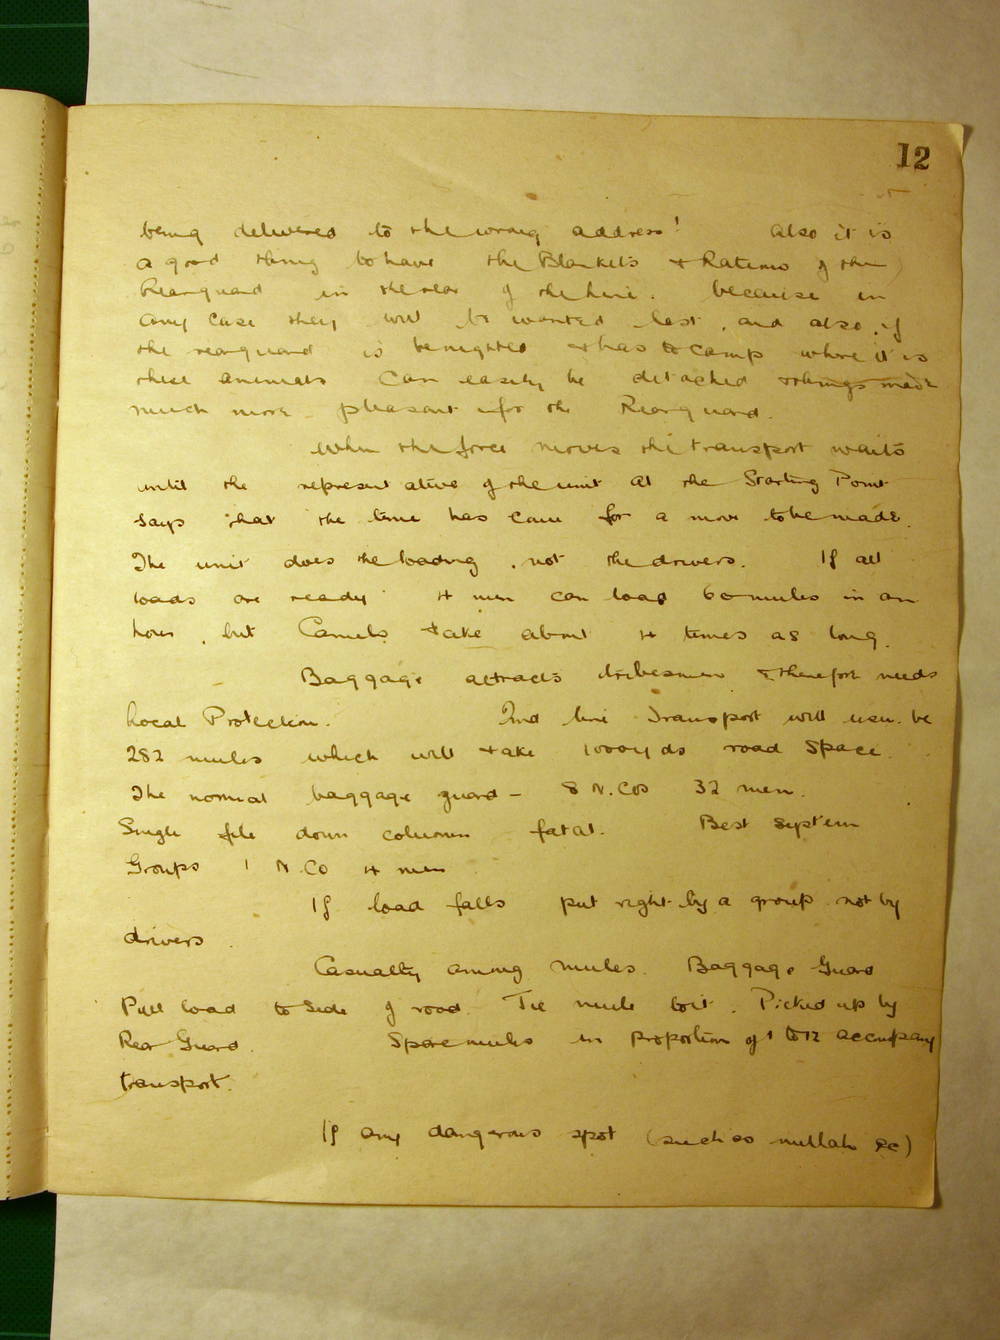 12
being delivered to the wrong address! Also it is
a good thing to have the Blankets & Rations of the
Rearguard in the rear of the line. because in
any case they will be wanted last, and also, if
the rearguard is benighted & has to camp where it is
these animals can easily be detached & things made
much more pleasant for the Rearguard.
When the force moves the transport waits
until the representative of the unit at the Starting Point
says that the time has come for a move to be made.
The unit does the loading, not the drivers. If all
loads are ready 4 men can load 60 mules in an
hour, but Camels take about 4 times as long.
Baggage attracts tribesmen & therefore needs
Local Protection. 2nd line Transport will usu. be
282 mules which will take 1000 yds road space.
The normal baggage guard - 8 N.COs 32 men.
Single file down column fatal. Best System
Groups 1 N.CO 4 men
If load falls put right by a group not by
drivers.
Casualty among mules. Baggage Guard
Pull load to side of road. Tie mule to it. Picked up by
Rear Guard. Spare mules in proportion of 1 to 12 accompany
transport.
If any dangerous spot (such as nullah &c)